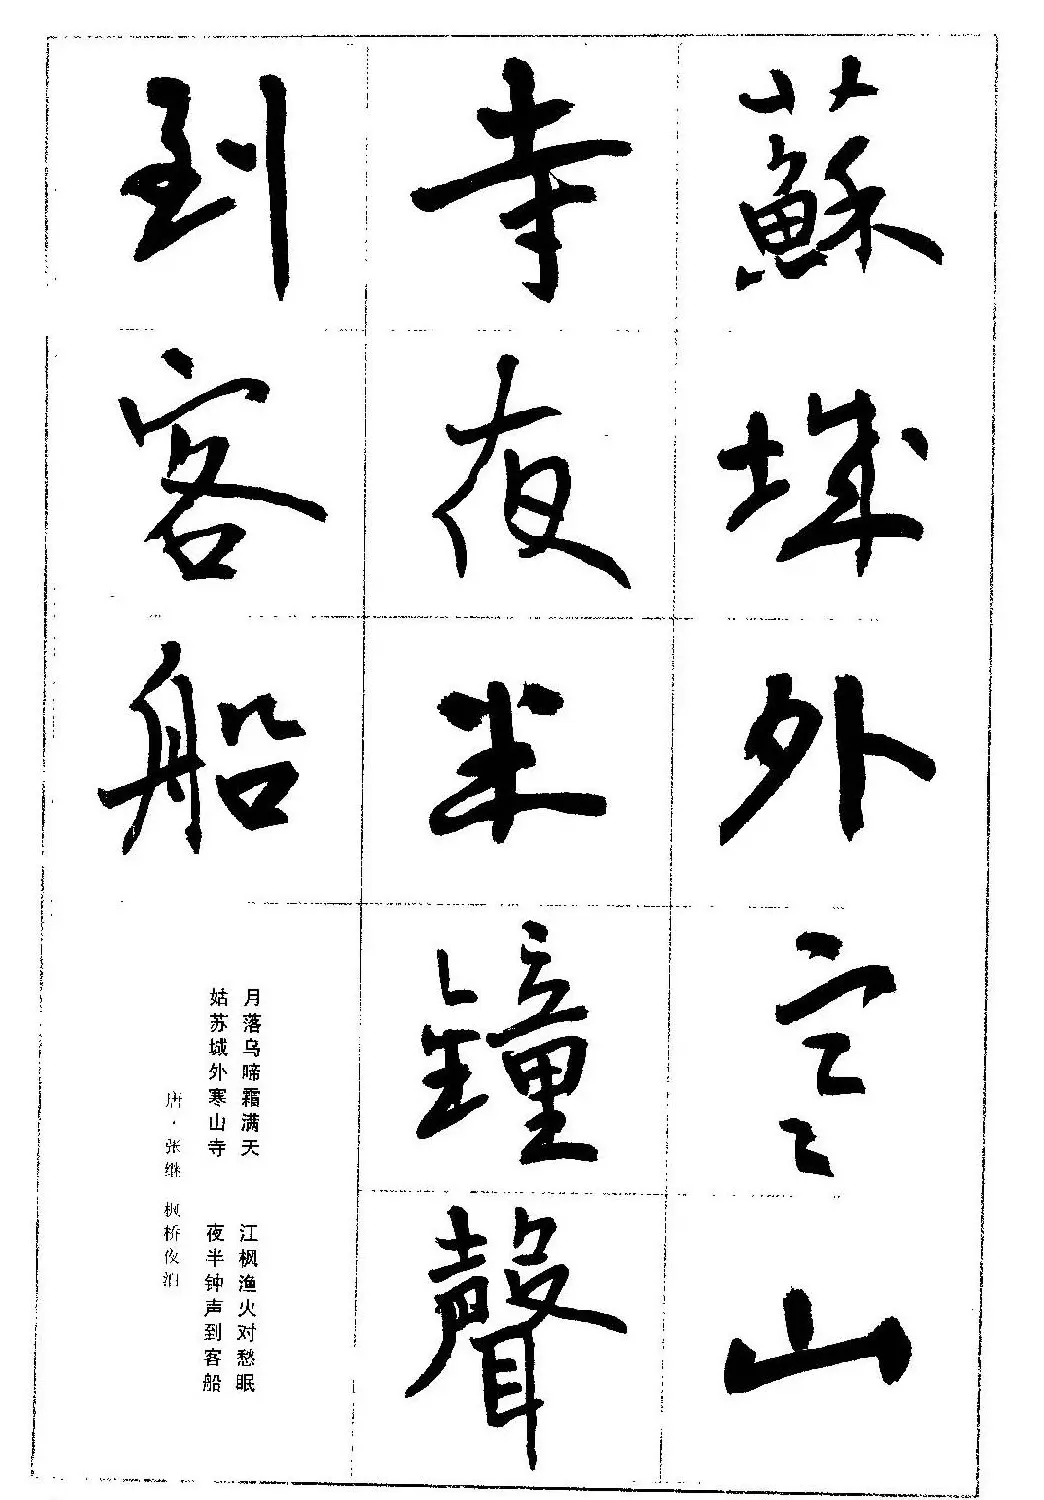 蘇城外寒山
寺夜半鐘聲
到客船
月落乌啼霜满天 江枫渔火对愁眠
姑苏城外寒山寺 夜半钟声到客船
唐·张继 枫桥夜泊